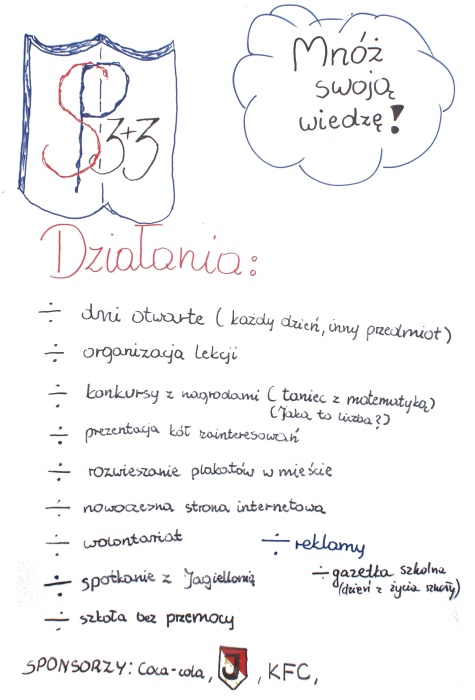 SP 3+3
Mnóż
swoją
wiedzę!
Działania:
÷ dni otwarte (każdy dzień, inny przedmiot)
÷ organizacja lekcji
÷ konkursy z nagrodami (taniec z matematyką)
(Jaka to liczba?)
÷ prezentacja kół zainteresowań
÷ rozwieszanie plakatów w mieście
÷ nowoczesna strona internetowa
÷ wolontariat
÷ reklamy
÷ spotkanie z Jagiellonią
÷ gazetka szkolna
(dzień z życia szkoły)
÷ szkoła bez przemocy
SPONSORZY: Coca-cola, J, KFC,